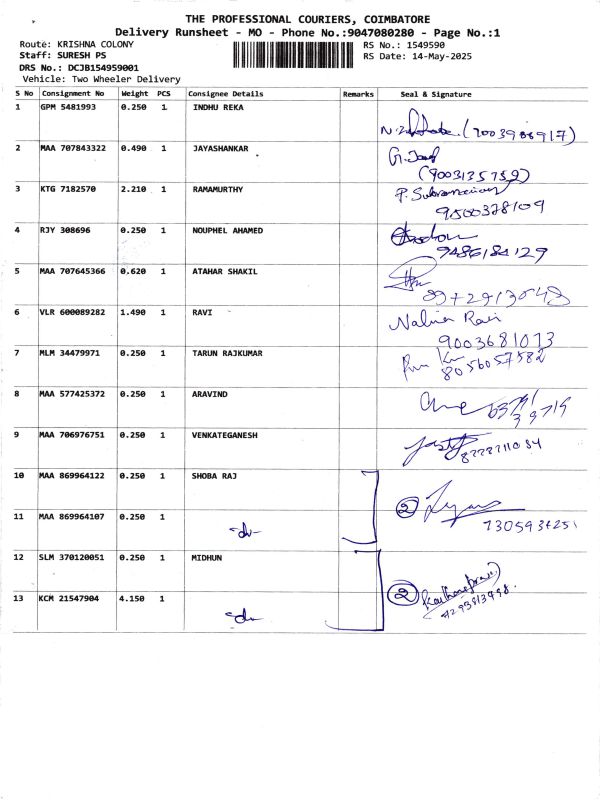 THE PROFESSIONAL COURIERS, COIMBATORE
Delivery Runsheet - MO - Phone No.:9047080280 - Page No.:1
Route: KRISHNA COLONY
RS No.: 1549590
Staff: SURESH PS
RS Date: 14-May-2025
DRS No.: DCJB154959001
Vehicle: Two Wheeler Delivery
S No Consignment No Weight PCS Consignee Details Remarks Seal & Signature
1 GPM 5481993 0.250 1 INDHU REKA
(7003988917)
2 MAA 707843322 0.490 1 JAYASHANKAR
(9003135759)
3 KTG 7182570 2.210 1 RAMAMURTHY
9500378109
4 RJY 308696 0.250 1 NOUPHEL AHAMED
9486184129
5 MAA 707645366 0.620 1 ATAHAR SHAKIL
6 VLR 600089282 1.490 1 RAVI Nalina Ravi
9003681073
7 MLM 34479971 0.250 1 TARUN RAJKUMAR
8056057582
8 MAA 577425372 0.250 1 ARAVIND
9 MAA 706976751 0.250 1 VENKATEGANESH
10 MAA 869964122 0.250 1 SHOBA RAJ
2
11 MAA 869964107 0.250 1
12 SLM 370120051 0.250 1 MIDHUN
2
13 KCM 21547904 4.150 1